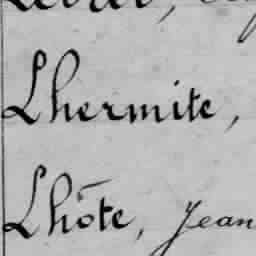 Lhermite,
Lhôte, Jean